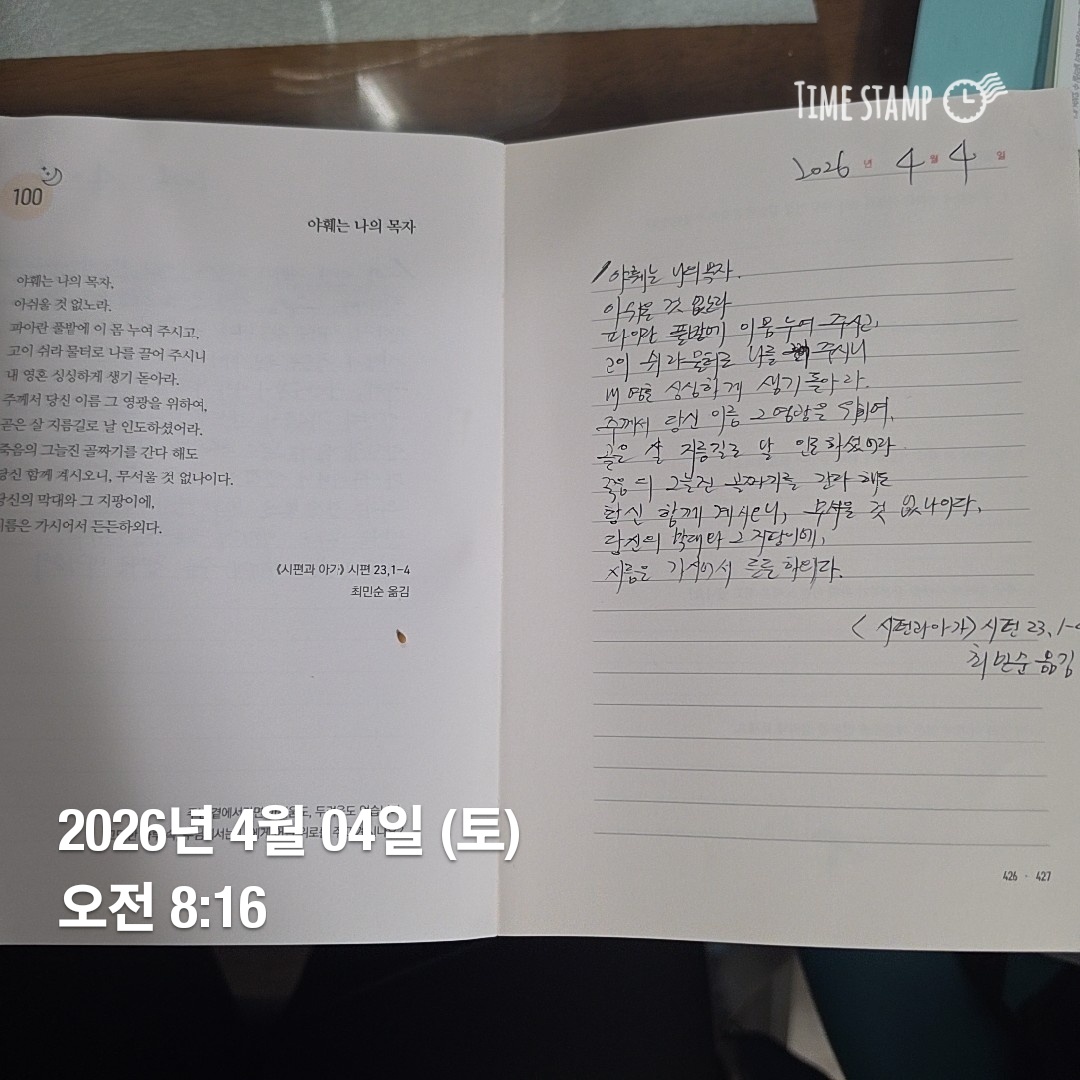 TIME STAMP
100
야훼는 나의 목자
야훼는 나의 목자,
아쉬울 것 없노라.
파아란 풀밭에 이 몸 누여 주시고,
고이 쉬라 물터로 나를 끌어 주시니
내 영혼 싱싱하게 생기 돋아라.
주께서 당신 이름 그 영광을 위하여,
곧은 살 지름길로 날 인도하셨어라.
죽음의 그늘진 골짜기를 간다 해도
당신 함께 계시오니, 무서울 것 없나이다.
당신의 막대와 그 지팡이에,
시름은 가시어서 든든하외다.
《시편과 아가》 시편 23,1-4
최민순 옮김
2026년 4월 4일
야훼는 나의 목자.
아쉬울 것 없노라
파아란 풀밭에 이 몸 누여 주시고,
고이 쉬라 물터로 나를 주시니
내 영혼 싱싱하게 생기 돋아라.
주께서 당신 이름 그 영광을 위하여,
곧은 살 지름길로 날 인도하셨어라
죽음의 그늘진 골짜기를 간다 해도
당신 함께 계시오니, 무서울 것 없나이다,
당신의 막대와 그 지팡이에,
시름은 가시어서 든든하외다.
〈시편과 아가〉 시편 23, 1-
최민순 옮김
426 · 427
2026년 4월 04일 (토)
오전 8:16